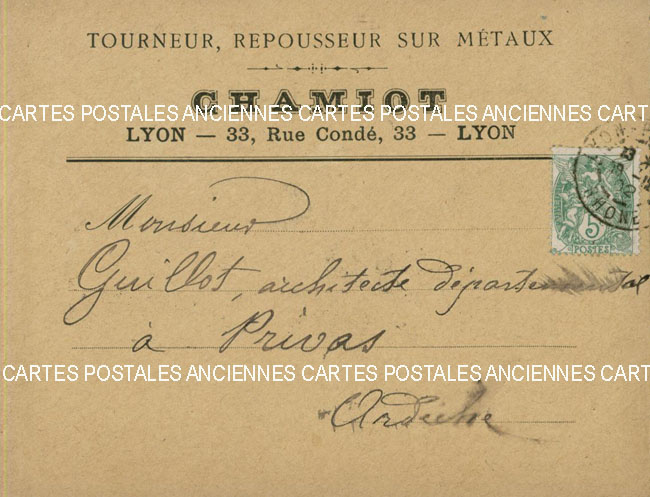 TOURNEUR, REPOUSSEUR SUR MÉTAUX
CHAMIOT
CARTES POSTALES ANCIENNES CARTES POSTALES ANCIENNES CART
LYON — 33, Rue Condé, 33 — LYON
RHONE
5
POSTES
Monsieur
Guillot, architecte départemental
à Privas
CARTES POSTALES ANCIENNES CARTES POSTALES ANCIENNES CART
Ardèche